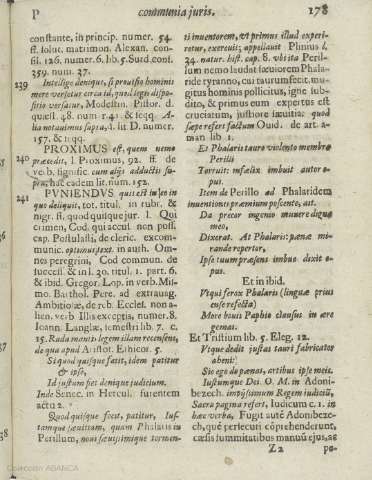 P communia juris. 178
constante, in princip. numer. 54.
ff. solut. matrimon. Alexan. con-
sil. 126. numer. 6. lib. 5. Surd. consf.
359. num. 37.
239 Intellige denique, si provisio hominis
mere versetur circa id, quod legis dispo-
sitio versatur, Modestin. Pistor. d.
quæst. 48. num 141. & seqq. A-
lia notavimus supra, d. lit D. numer.
157. & seqq.
PROXIMUS est, quem nemo
240 præcedit, l. Proximus, 92. ff. de
verb. signific. cum aliis adductis su-
pra, hac eadem lit. num. 152.
PVNIENDVS quis est in eo in
241 quo deliquit, tot. titul. in rubr. &
nigr. ff. quod quisque jur. l. Qui
crimen, Cod. qui accus. non poss.
cap. Postulasti, de cleric. excom-
munic. optimus text. in auth. Om-
nes peregrini, Cod. commun. de
success. & in l. 20. titul. 1. part. 6.
& ibid. Gregor. Lop. in verb. Mis-
mo. Barthol. Pere. ad extravag.
Ambitiosæ, de reb. Eccles. non a-
lien. verb. Illis exceptis, numer. 8.
Ioann. Langlæ, semestri lib. 7. c.
15. Radamanti legem illam recensens,
de qua apud Aristot. Ethicor. 5.
Si quod quisque fecit, idem patitur
& ipse,
Id justum fiet denique judicium.
Inde Senec. in Hercul. furentem
actu 2.
Quod quisque fecit, patitur, Ius-
tamque sævitiam, quam Phalaris in
Perillum, novi sævissimique tormen-
ti inventorem, ut primus illud experi-
retur, exercuit; appellavit Plinius l.
34. natur. hist. cap. 8. ubi ita Peril-
lum nemo laudat sævorem Phala-
ride tyranno, cui taurum fecit, mu-
gitus hominis pollicitus, igne sub-
dito, & primus eum expertus est
cruciatum, justiore sævitia: quod
sæpe refert factum Ouid. de art. a-
man lib 1.
Et Phalaris tauro violento membra
Perilli
Torruit: infælix imbuit autor o-
pus.
Item de Perillo ad Phalaridem
inventionis præmium poscente, ait.
Da precor ingenio munere digna
meo,
Dixerat. At Phalaris: pænæ mi-
rande repertor,
Ipse tuum præsens imbue dixit o-
pus.
Et in ibid.
Utque ferox Phalaris (lingua prius
ense resecta)
More bouis Paphio clausus in ære
gemas.
Et Tristium lib. 5. Eleg. 12.
Utque dedit justas tauri fabricator
aheni:
Sic ego do pænas, artibus ipse meis.
Iustumque Dei. O. M. in Adoni-
bezech. impijssimum Regem iudiciũ,
Sacra pagina refert, Iudicum c. 1. in
hæc verba, Fugit autẽ Adonibeze-
ch, quẽ persecuti cõprehenderunt,
cæsis summitatibus manuũ ejus, ac
Z 2 pe-
Colección ABANCA